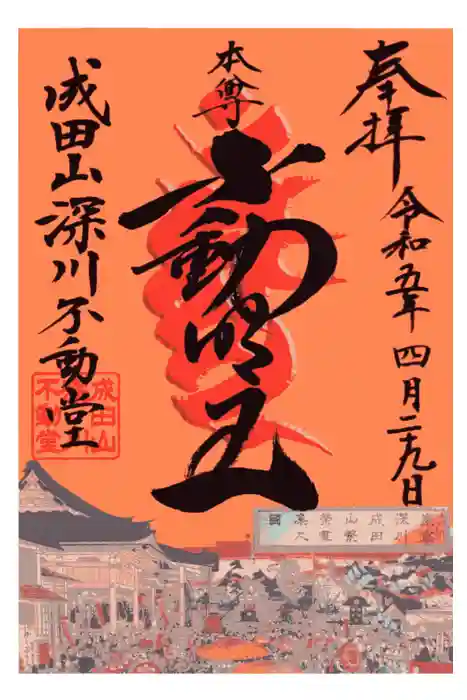 奉拝
令和五年四月二十九日
本尊
不動明王
成田山深川不動堂
成田山
不動堂
深川
成田
山繁